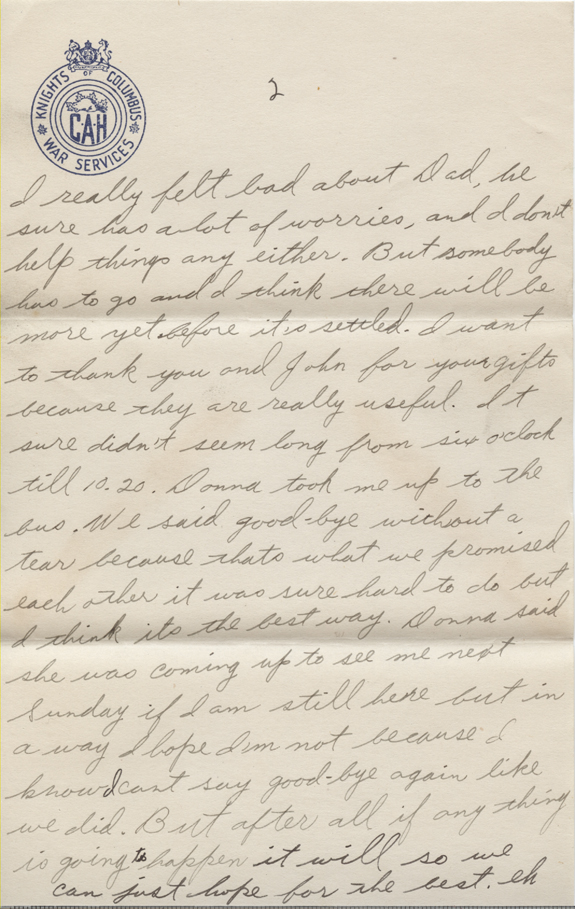 KNIGHTS OF COLUMBUS
CAH
WAR SERVICES
2
I really felt bad about Dad, he
sure has a lot of worries, and I don't
help things any either. But somebody
has to go and I think there will be
more yet before it's settled. I want
to thank you and John for your gifts
because they are really useful. It
sure didn't seem long from six o'clock
till 10.20. Donna took me up to the
bus. We said good-bye without a
tear because thats what we promised
each other it was sure hard to do but
I think its the best way. Donna said
she was coming up to see me next
Sunday if I am still here but in
a way I hope I'm not because I
know I cant say good-bye again like
we did. But after all if any thing
is going to happen it will so we
can just hope for the best. eh